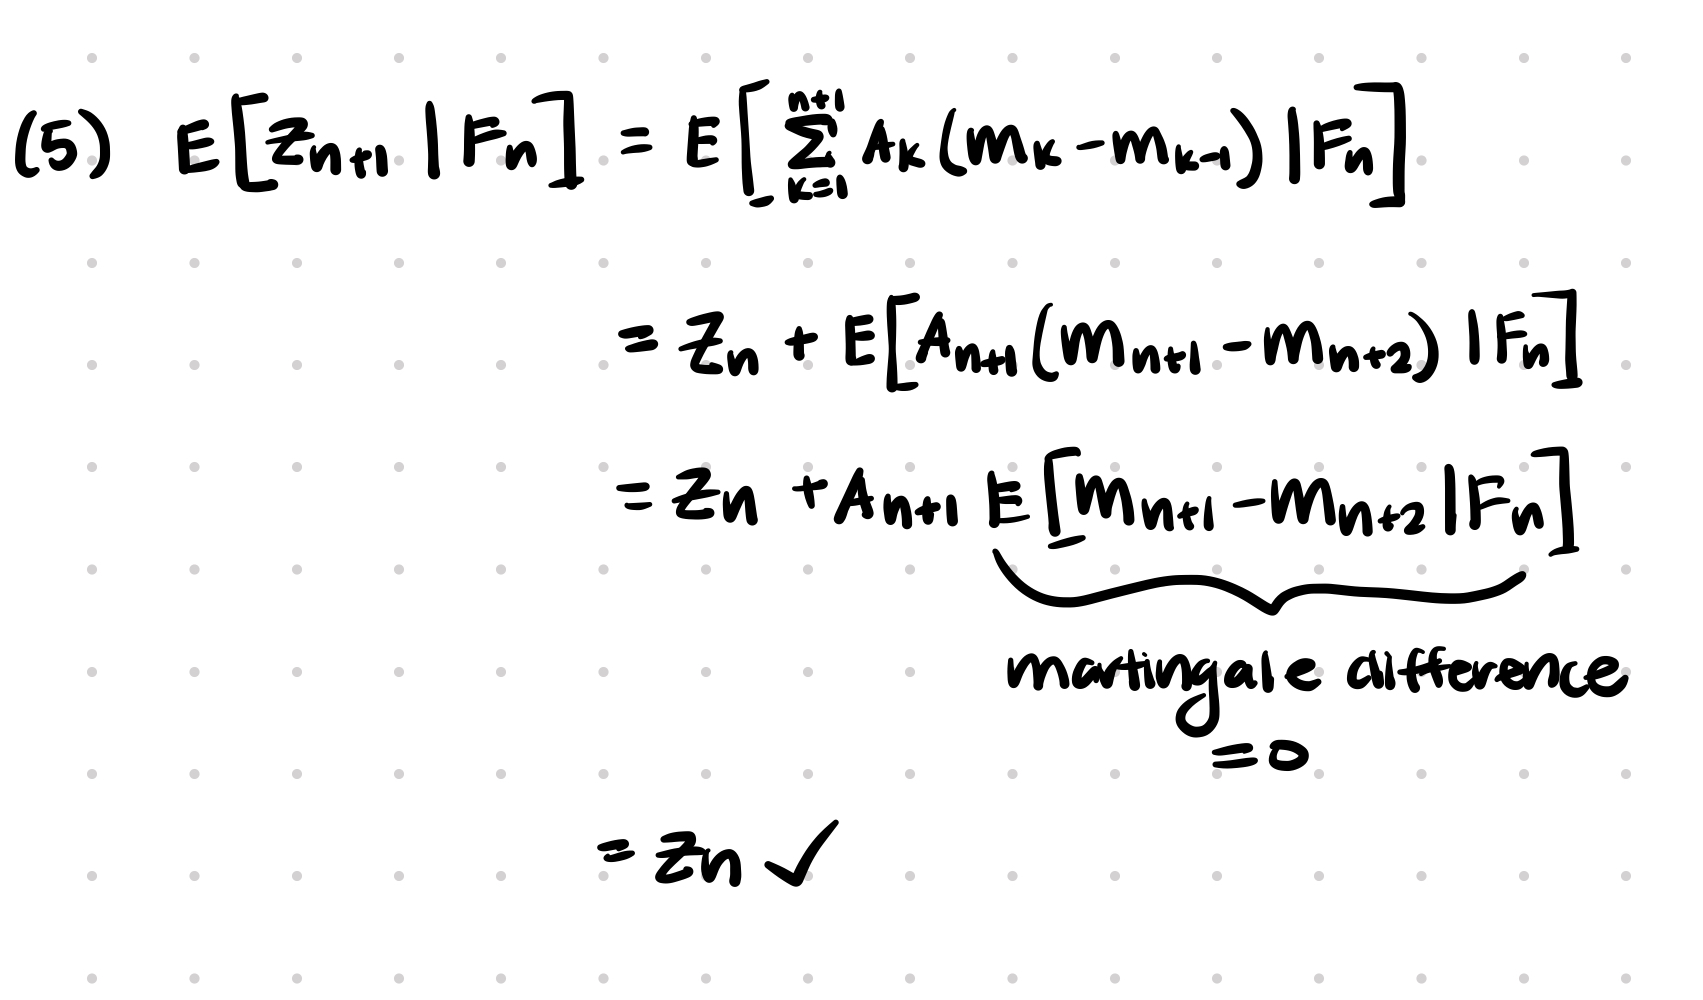 (5) E[Z_{n+1} | F_n] = E[∑_{k=1}^{n+1} A_k (m_k - m_{k-1}) | F_n]
= Z_n + E[A_{n+1} (m_{n+1} - m_{n+2}) | F_n]
= Z_n + A_{n+1} E[m_{n+1} - m_{n+2} | F_n]
martingale difference
= 0
= Z_n ✓